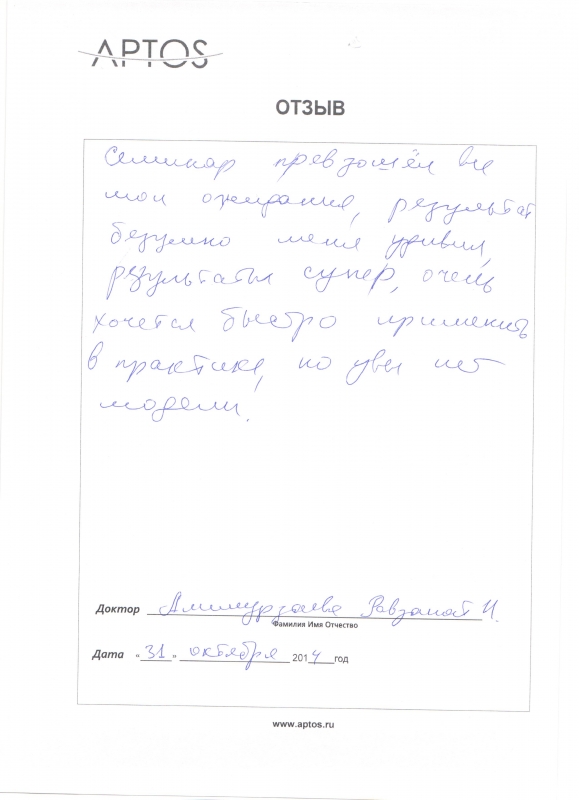 APTOS
ОТЗЫВ
Семинар превзошёл все
мои ожидания, результат
безумно меня удивил,
результаты супер, очень
хочется быстро применить
в практике, но увы нет
модели.
Доктор Алимурзаева Равзанат И.
Фамилия Имя Отчество
Дата «31» октября 2014 год
www.aptos.ru